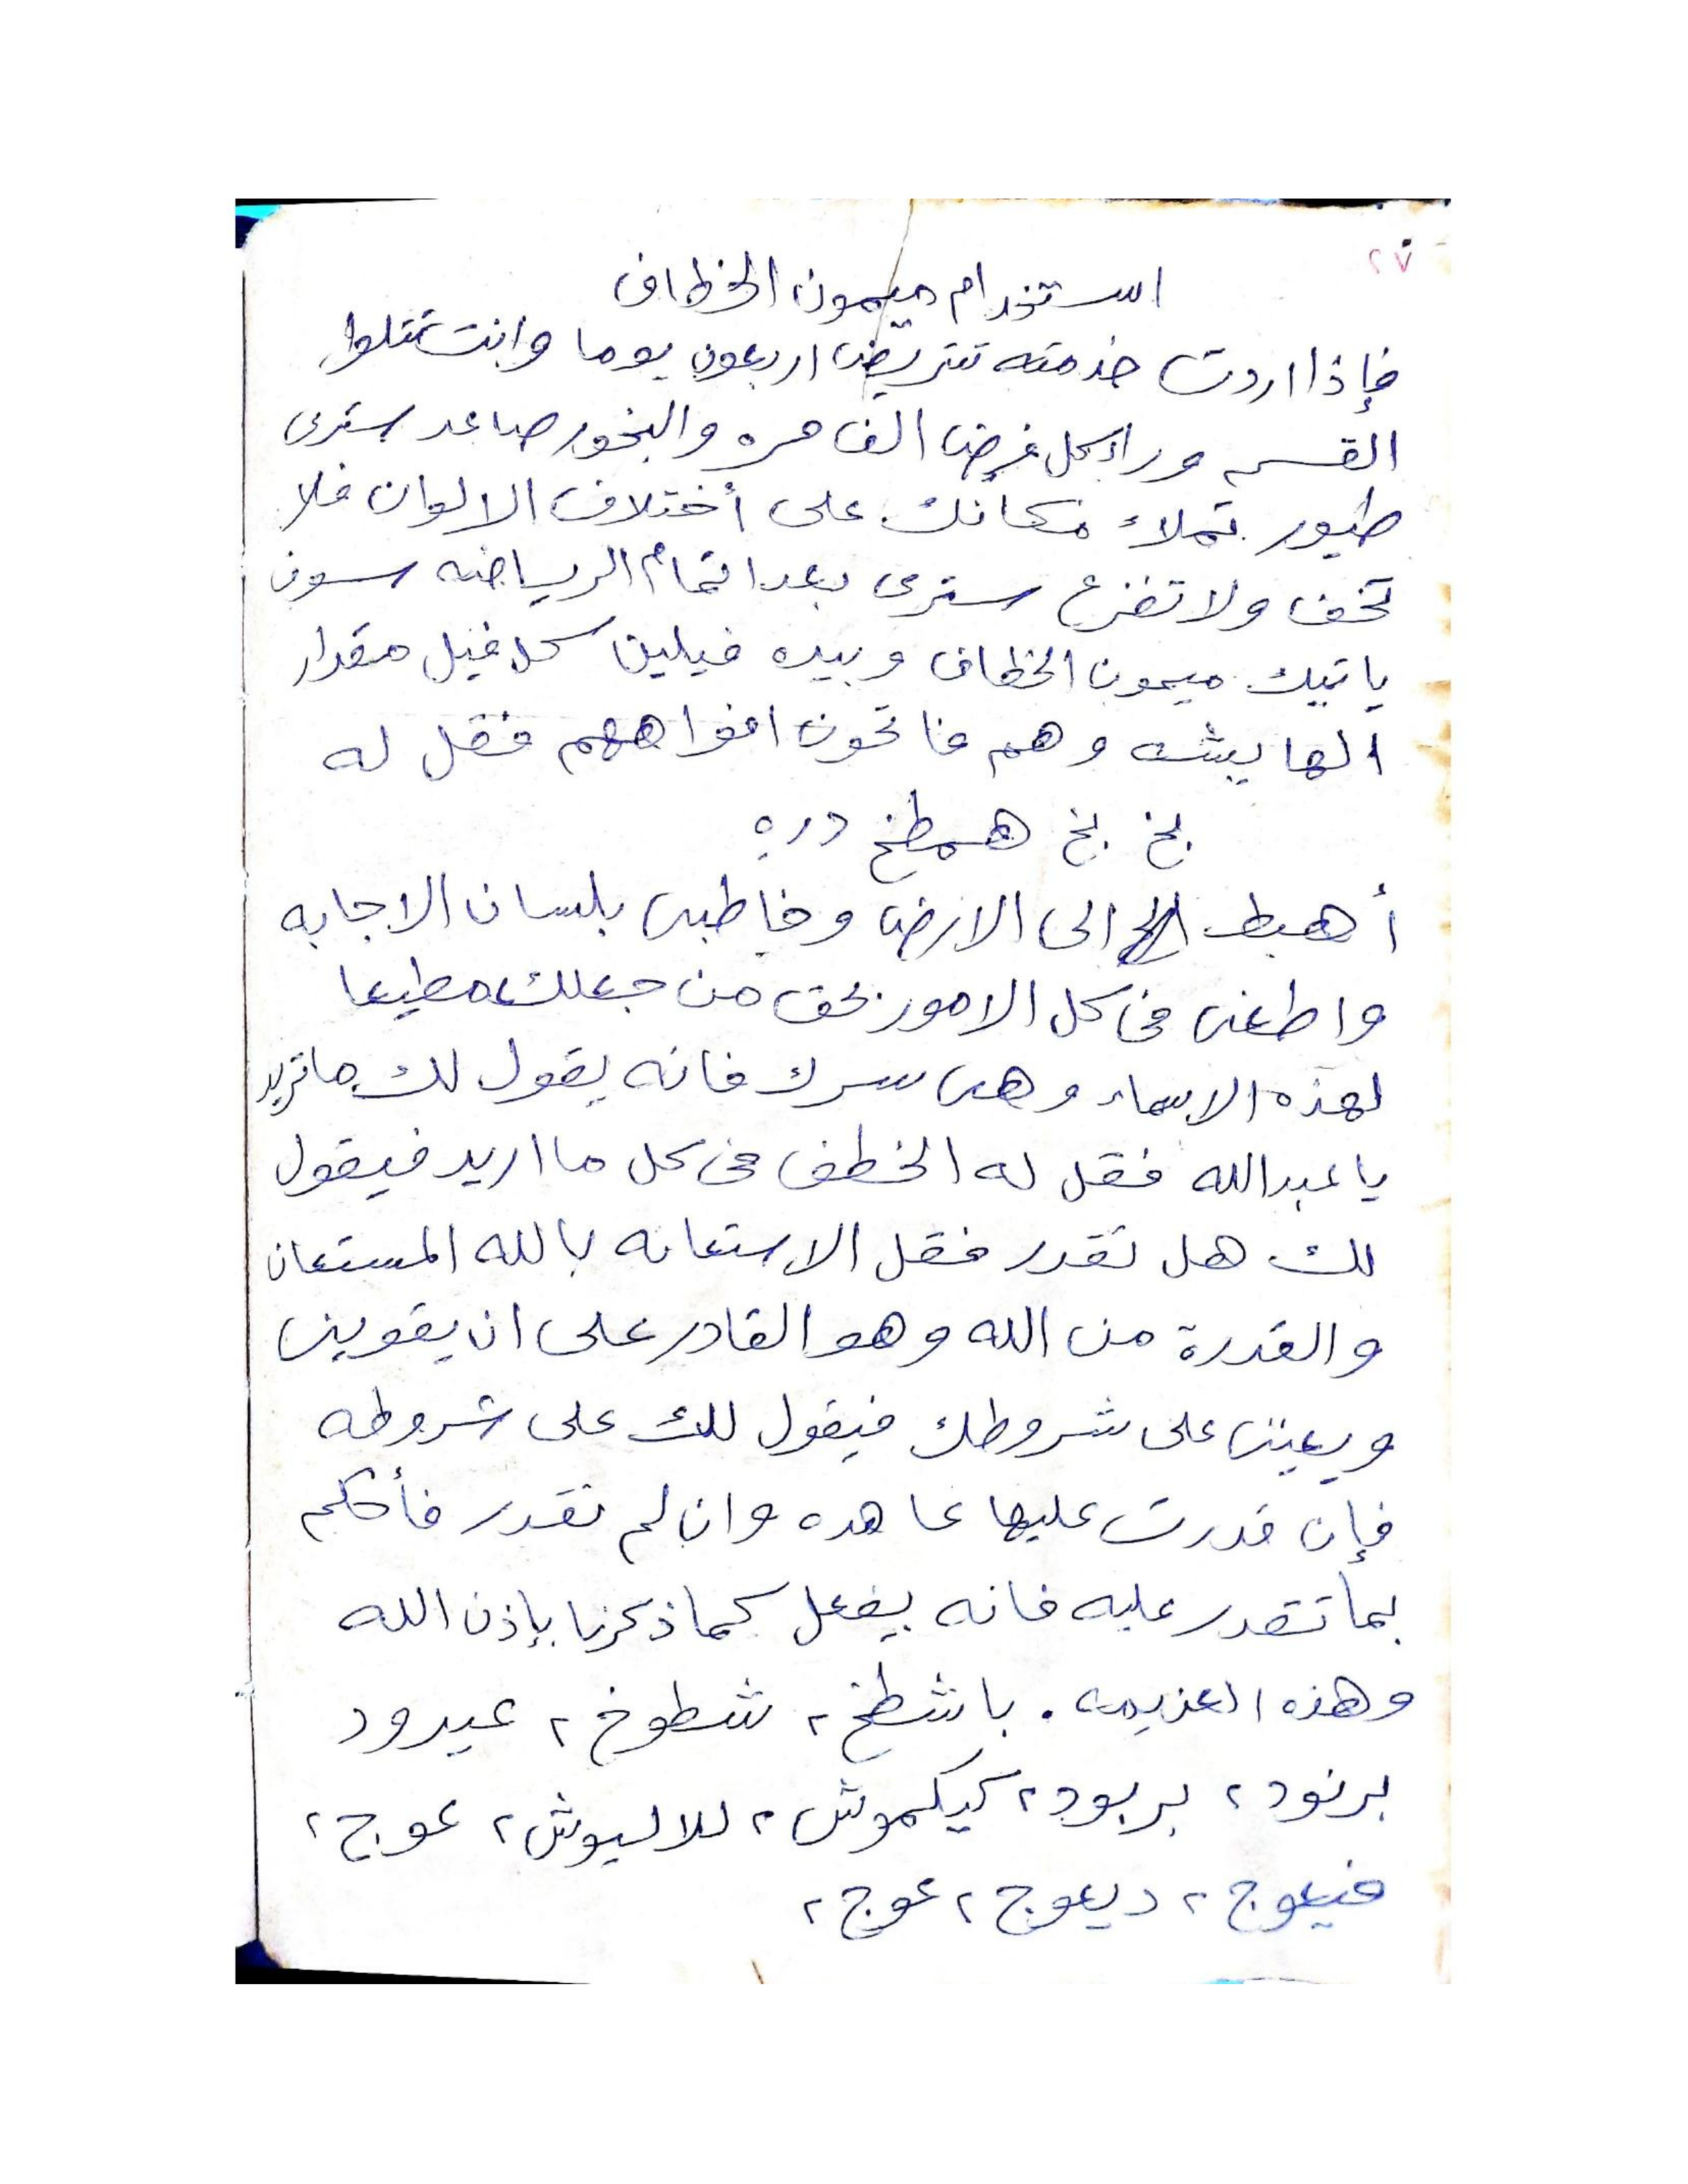 ٢٧
استخدام ميمون الخطاف
فإذا اردت خدمته تتريض اربعون يوما وانت تتلوا
القسم وراء كل فرض الف مره والبخور صاعد سترى
طيور تملاء مكانك على أختلاف الالوان فلا
تخف ولا تفزع سترى بعد اتمام الرياضه سوف
ياتيك ميمون الخطاف وبيده فيلين كل فيل مقدار
الهايشه وهم فاتحون افواههم فقل له
بخ بخ همطخ دره
أهبط الى الارض وخاطبنى بلسان الاجابه
واطعنى فى كل الامور بحق من جعلك مطيعا
لهذه الاسماء وهى سرك فانه يقول لك ماتريد
يا عبدالله فقل له الخطف فى كل ما اريد فيقول
لك هل تقدر فقل الاستعانه بالله المستعان
والقدرة من الله وهو القادر على ان يقوينى
ويعيننى على شروطك فيقول لك على شروطه
فإن قدرت عليها عاهده وان لم تقدر فأحكم
بما تقدر عليه فانه يفعل كما ذكرنا بإذن الله
وهذه العزيمه . باشطخ ٢ شطوخ ٢ عيرود
برنود ٢ بربود ٢ كيكموش ٢ للاليوش ٢ عوج ٢
فيعوج ٢ ديعوج ٢ عوج ٢